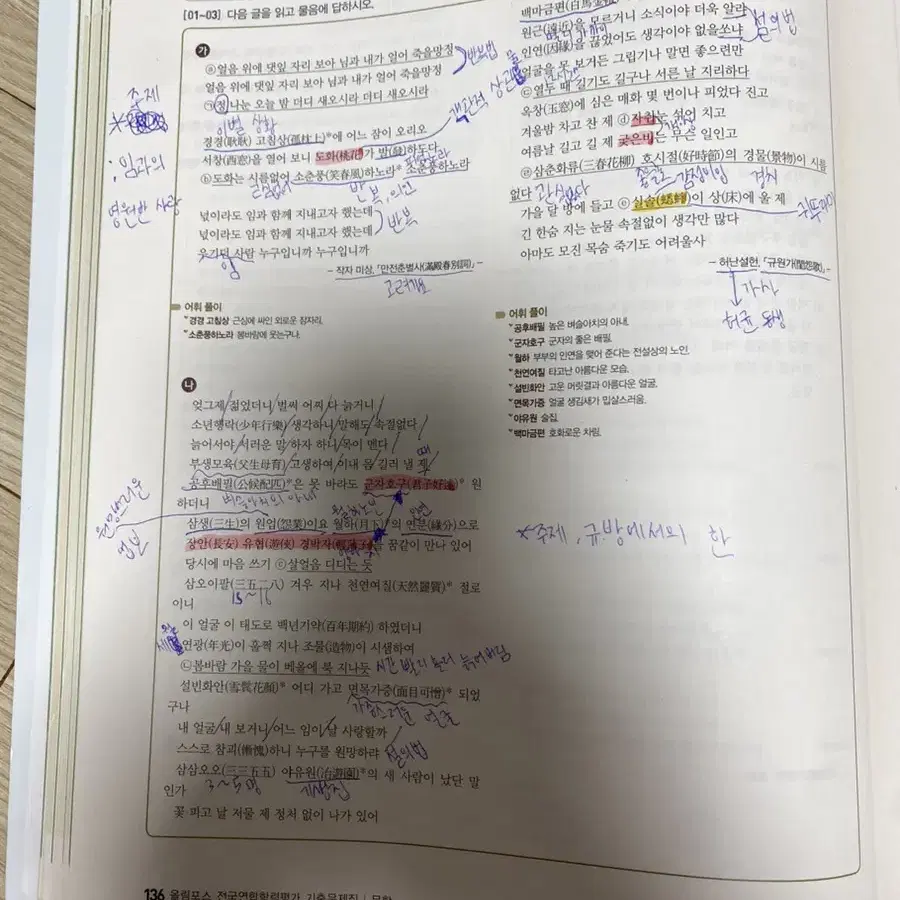 [01~03] 다음 글을 읽고 물음에 답하시오.
가
ⓐ얼음 위에 댓잎 자리 보아 님과 내가 얼어 죽을망정
얼음 위에 댓잎 자리 보아 님과 내가 얼어 죽을망정
㉠정 나눈 오늘 밤 더디 새오시라 더디 새오시라
반복법
이별 상황
객관적 상관물
경경(耿耿) 고침상(孤枕上)*에 어느 잠이 오리오
서창(西窓)을 열어 보니 도화(桃花)가 발(發)하두다
ⓑ도화는 시름없어 소춘풍(笑春風)하노라* 소춘풍하노라
반복, 의인
넋이라도 임과 함께 지내고자 했는데
넋이라도 임과 함께 지내고자 했는데
반복
우기던 사람 누구입니까 누구입니까
임
- 작자 미상, 「만전춘별사(滿殿春別詞)」-
고려가요
주제
: 임과의
영원한 사랑
어휘 풀이
*경경 고침상 근심에 싸인 외로운 잠자리.
*소춘풍하노라 봄바람에 웃는구나.
나
엊그제 젊었더니 벌써 어찌 다 늙거니
소년행락(少年行樂) 생각하니 말해도 속절없다
늙어서야 서러운 말 하자 하니 목이 멘다
부생모육(父生母育) 고생하여 이내 몸 길러 낼 제
때
공후배필(公候配匹)*은 못 바라도 군자호구(君子好逑)* 원
하더니
벼슬아치의 아내
삼생(三生)의 원업(怨業)이요 월하(月下)*의 연분(緣分)으로
장안(長安) 유협(遊俠) 경박자(輕薄子)를 꿈같이 만나 있어
당시에 마음 쓰기 ⓒ살얼음 디디는 듯
삼오이팔(三五二八) 겨우 지나 천연여질(天然麗質)* 절로
이니
15~16
이 얼굴 이 태도로 백년기약(百年期約) 하였더니
연광(年光)이 훌쩍 지나 조물(造物)이 시샘하여
㉡봄바람 가을 물이 베올에 북 지나듯
설빈화안(雪鬢花顔)* 어디 가고 면목가증(面目可憎)* 되었
구나
내 얼굴 내 보거니 어느 임이 날 사랑할까
스스로 참괴(慚愧)하니 누구를 원망하랴
설의법
삼삼오오(三三五五) 야유원(冶遊園)*의 새 사람이 났단 말
인가
3~5명
기생집
꽃 피고 날 저물 제 정처 없이 나가 있어
백마금편(白馬金鞭)
원근(遠近)을 모르거니 소식이야 더욱 알랴
인연(因緣)을 끊었어도 생각이야 없을쏘냐
설의법
얼굴을 못 보거든 그립기나 말면 좋으련만
ⓒ열두 때 길기도 길구나 서른 날 지리하다
옥창(玉窓)에 심은 매화 몇 번이나 피었다 진고
겨울밤 차고 찬 제 ⓓ자취눈 섞어 치고
여름날 길고 길 제 궂은비는 무슨 일인고
삼춘화류(三春花柳) 호시절(好時節)의 경물(景物)이 시름
없다
경치
가을 달 방에 들고 ⓔ실솔(蟋蟀)이 상(床)에 울 제
귀뚜라미
긴 한숨 지는 눈물 속절없이 생각만 많다
아마도 모진 목숨 죽기도 어려울사
- 허난설헌, 「규원가(閨怨歌)」-
가사
허균 동생
어휘 풀이
*공후배필 높은 벼슬아치의 아내.
*군자호구 군자의 좋은 배필.
*월하 부부의 인연을 맺어 준다는 전설상의 노인.
*천연여질 타고난 아름다운 모습.
*설빈화안 고운 머릿결과 아름다운 얼굴.
*면목가증 얼굴 생김새가 밉살스러움.
*야유원 술집.
*백마금편 호화로운 차림.
*주제, 규방에서의 한
136 올림포스 전국연합학력평가 기출문제집 | 문학